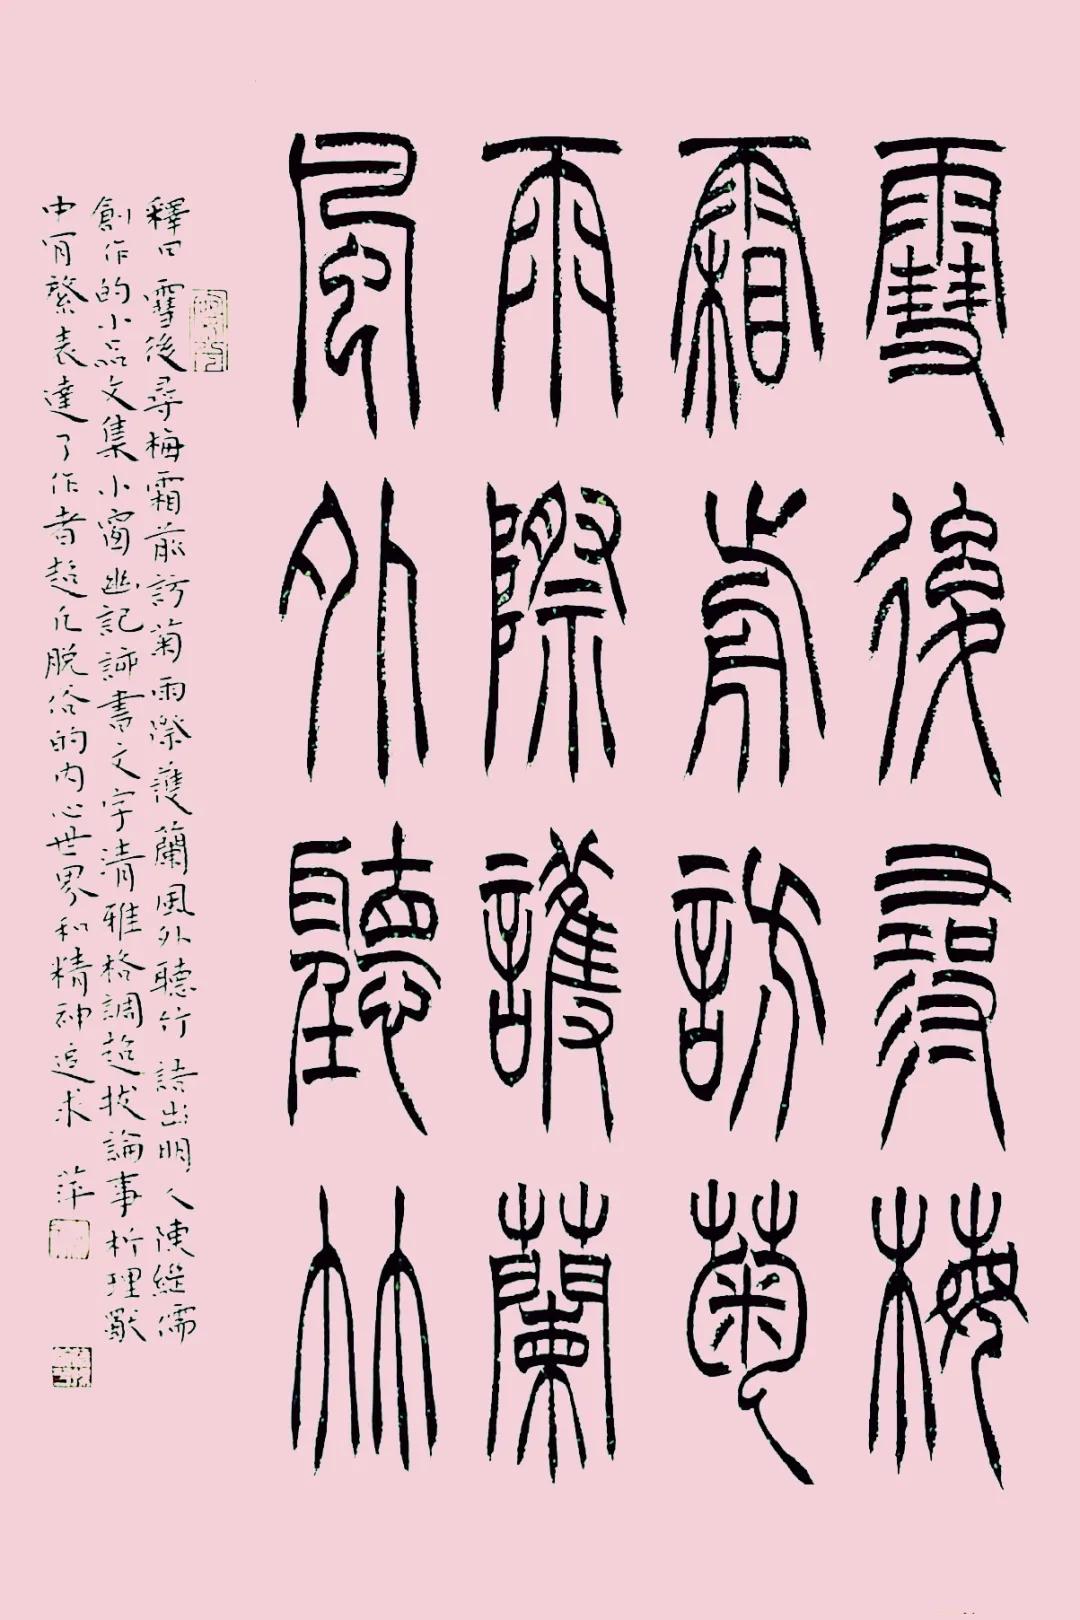 雪後尋梅
霜前訪菊
雨際護蘭
風外聽竹
釋曰雪後尋梅霜前訪菊雨際護蘭風外聽竹語出明人陳繼儒
創作的小品文集小窗幽記諦書文字清雅格調超拔論事析理獸
中肎綮表達了作者超凡脫俗的內心世界和精神追求 萍